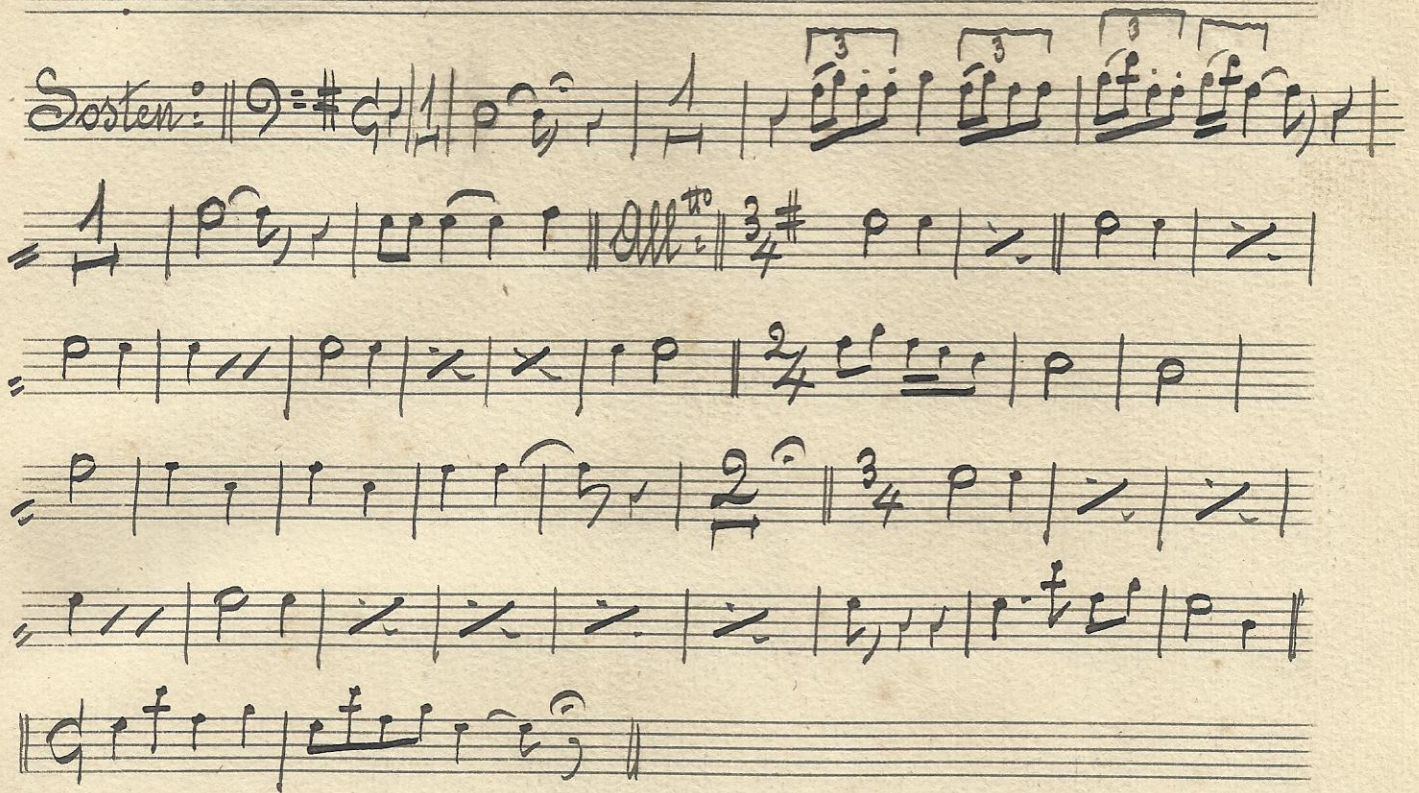 Sosten: 1 1 3 3 3
1 All.tto: 3/4
2/4
2 3/4